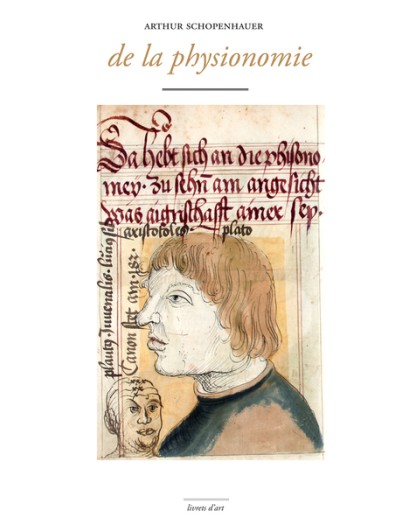 ARTHUR SCHOPENHAUER
de la physionomie
Da hebt sich an die phisono-
mey. zu sehn am angesicht
was aigenschafft ainer sey.
aristotoles. plato
plauty. Juvenalis.
Canon
livrets d'art